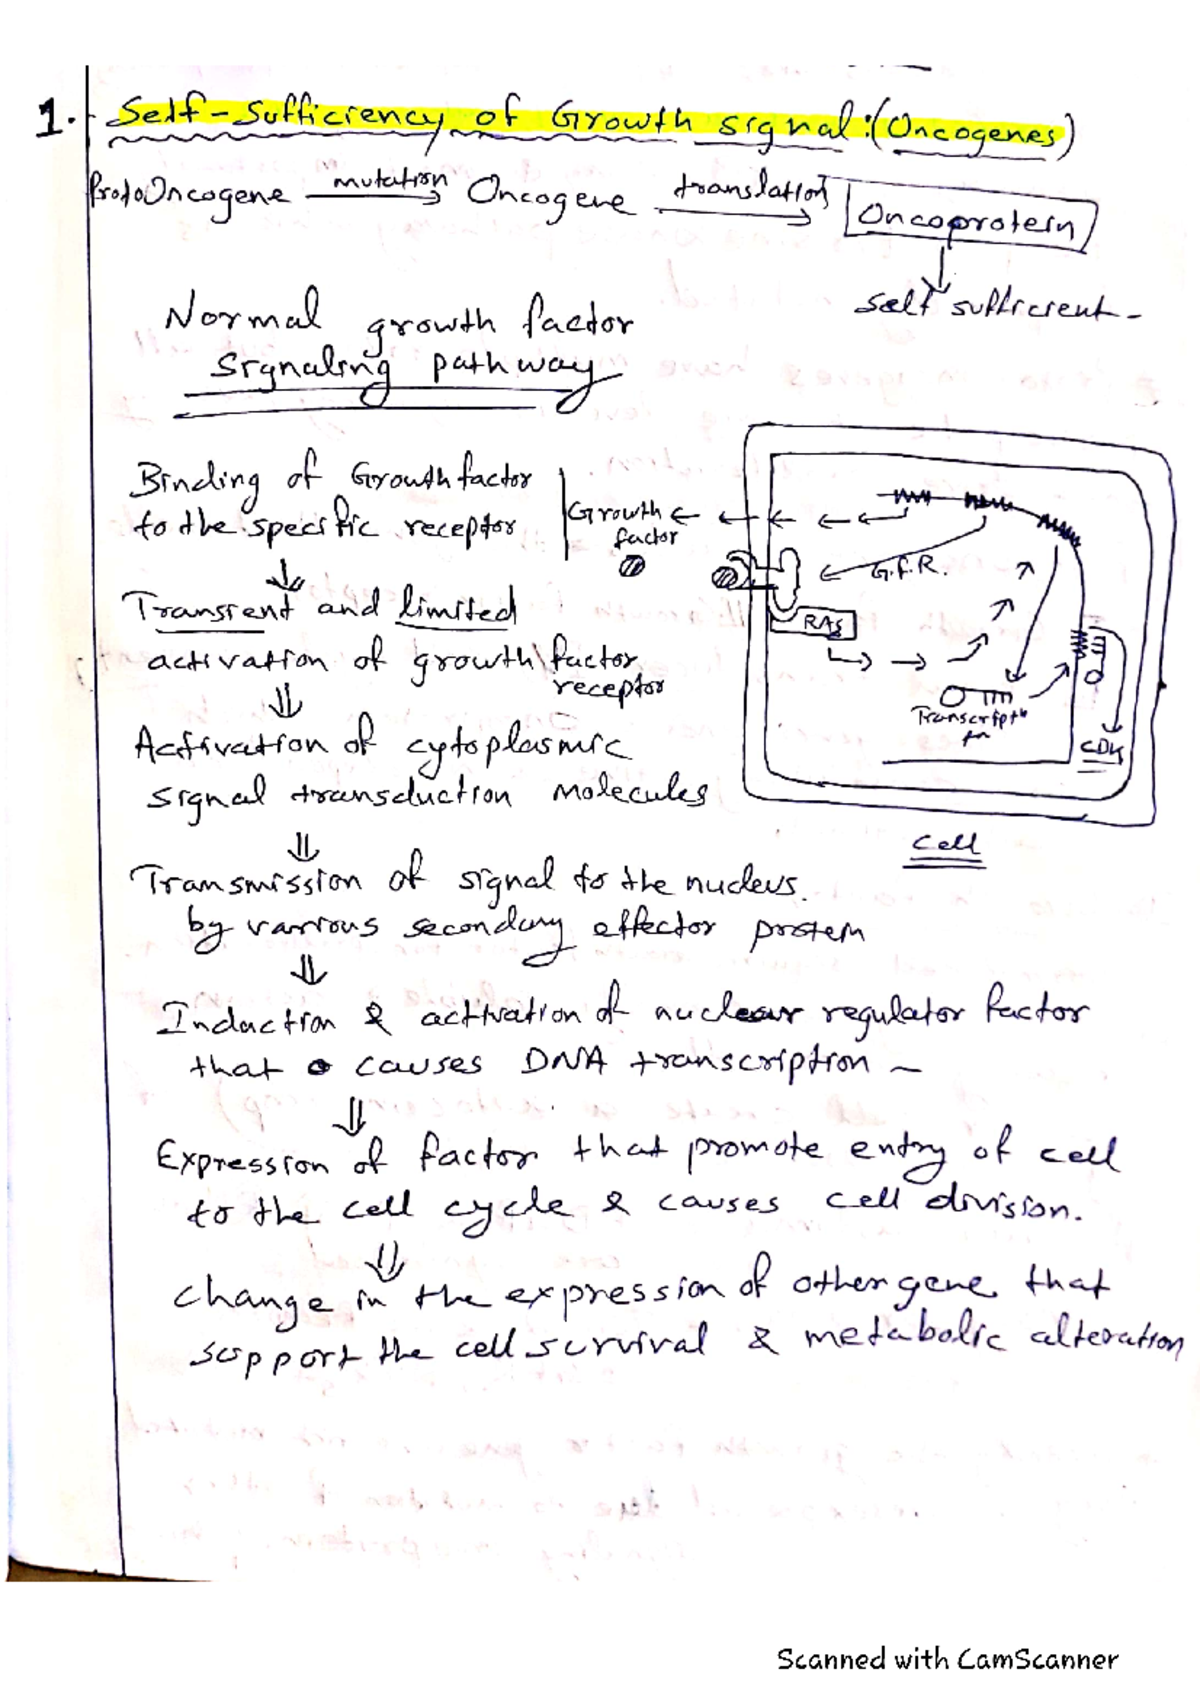 1. Self-Sufficiency of Growth signal:(Oncogenes)
ProtoOncogene mutation Oncogene translation Oncoprotein
Self sufficient -
Normal growth factor
signaling pathway
Binding of Growth factor
to the specific receptor
Transient and limited
activation of growth factor
receptor
Activation of cytoplasmic
signal transduction molecules
Transmission of signal to the nucleus.
by various secondary effector protein
Induction & activation of nuclear regulator factor
that causes DNA transcription -
Expression of factor that promote entry of cell
to the cell cycle & causes cell division.
change in the expression of other gene that
support the cell survival & metabolic alteration
Growth
factor
G.F.R.
RAS
CDK
Cell
Scanned with CamScanner